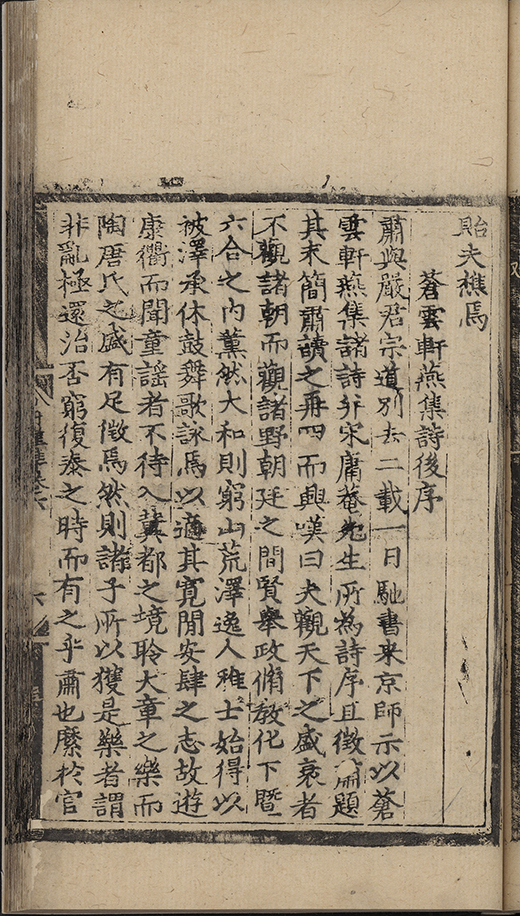 貽夫樵焉
蒼雲軒燕集詩後序
肅與嚴君宗道别去二載一日馳書来京師示以蒼
雲軒燕集諸詩并宋庸菴先生所為詩序且徴肅題
其末簡肅讀之再四而興嘆曰夫觀天下之盛衰者
不觀諸朝而觀諸野朝廷之間賢舉政脩教化下曁
六合之内薫然大和則窮山荒澤逸人雅士始得以
被澤承休鼓舞歌詠焉以適其寛閒安肆之志故遊
康衢而聞童謡者不待入冀都之境聆大章之樂而
陶唐氏之盛有足徴焉然則諸子所以獲是樂者謂
非亂極還治否窮復泰之時而有之乎肅也縻於官